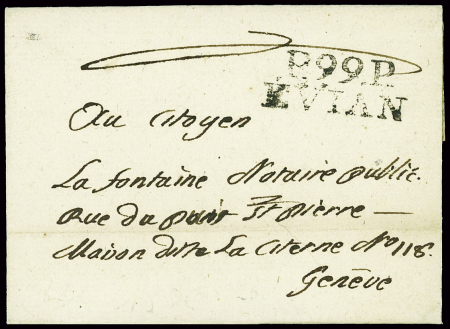 P.99.P.
EVIAN
Au Citoyen
La fontaine Notaire public.
Rue du puis St pierre —
Maison ditte La Citerne No 118.
Genêve